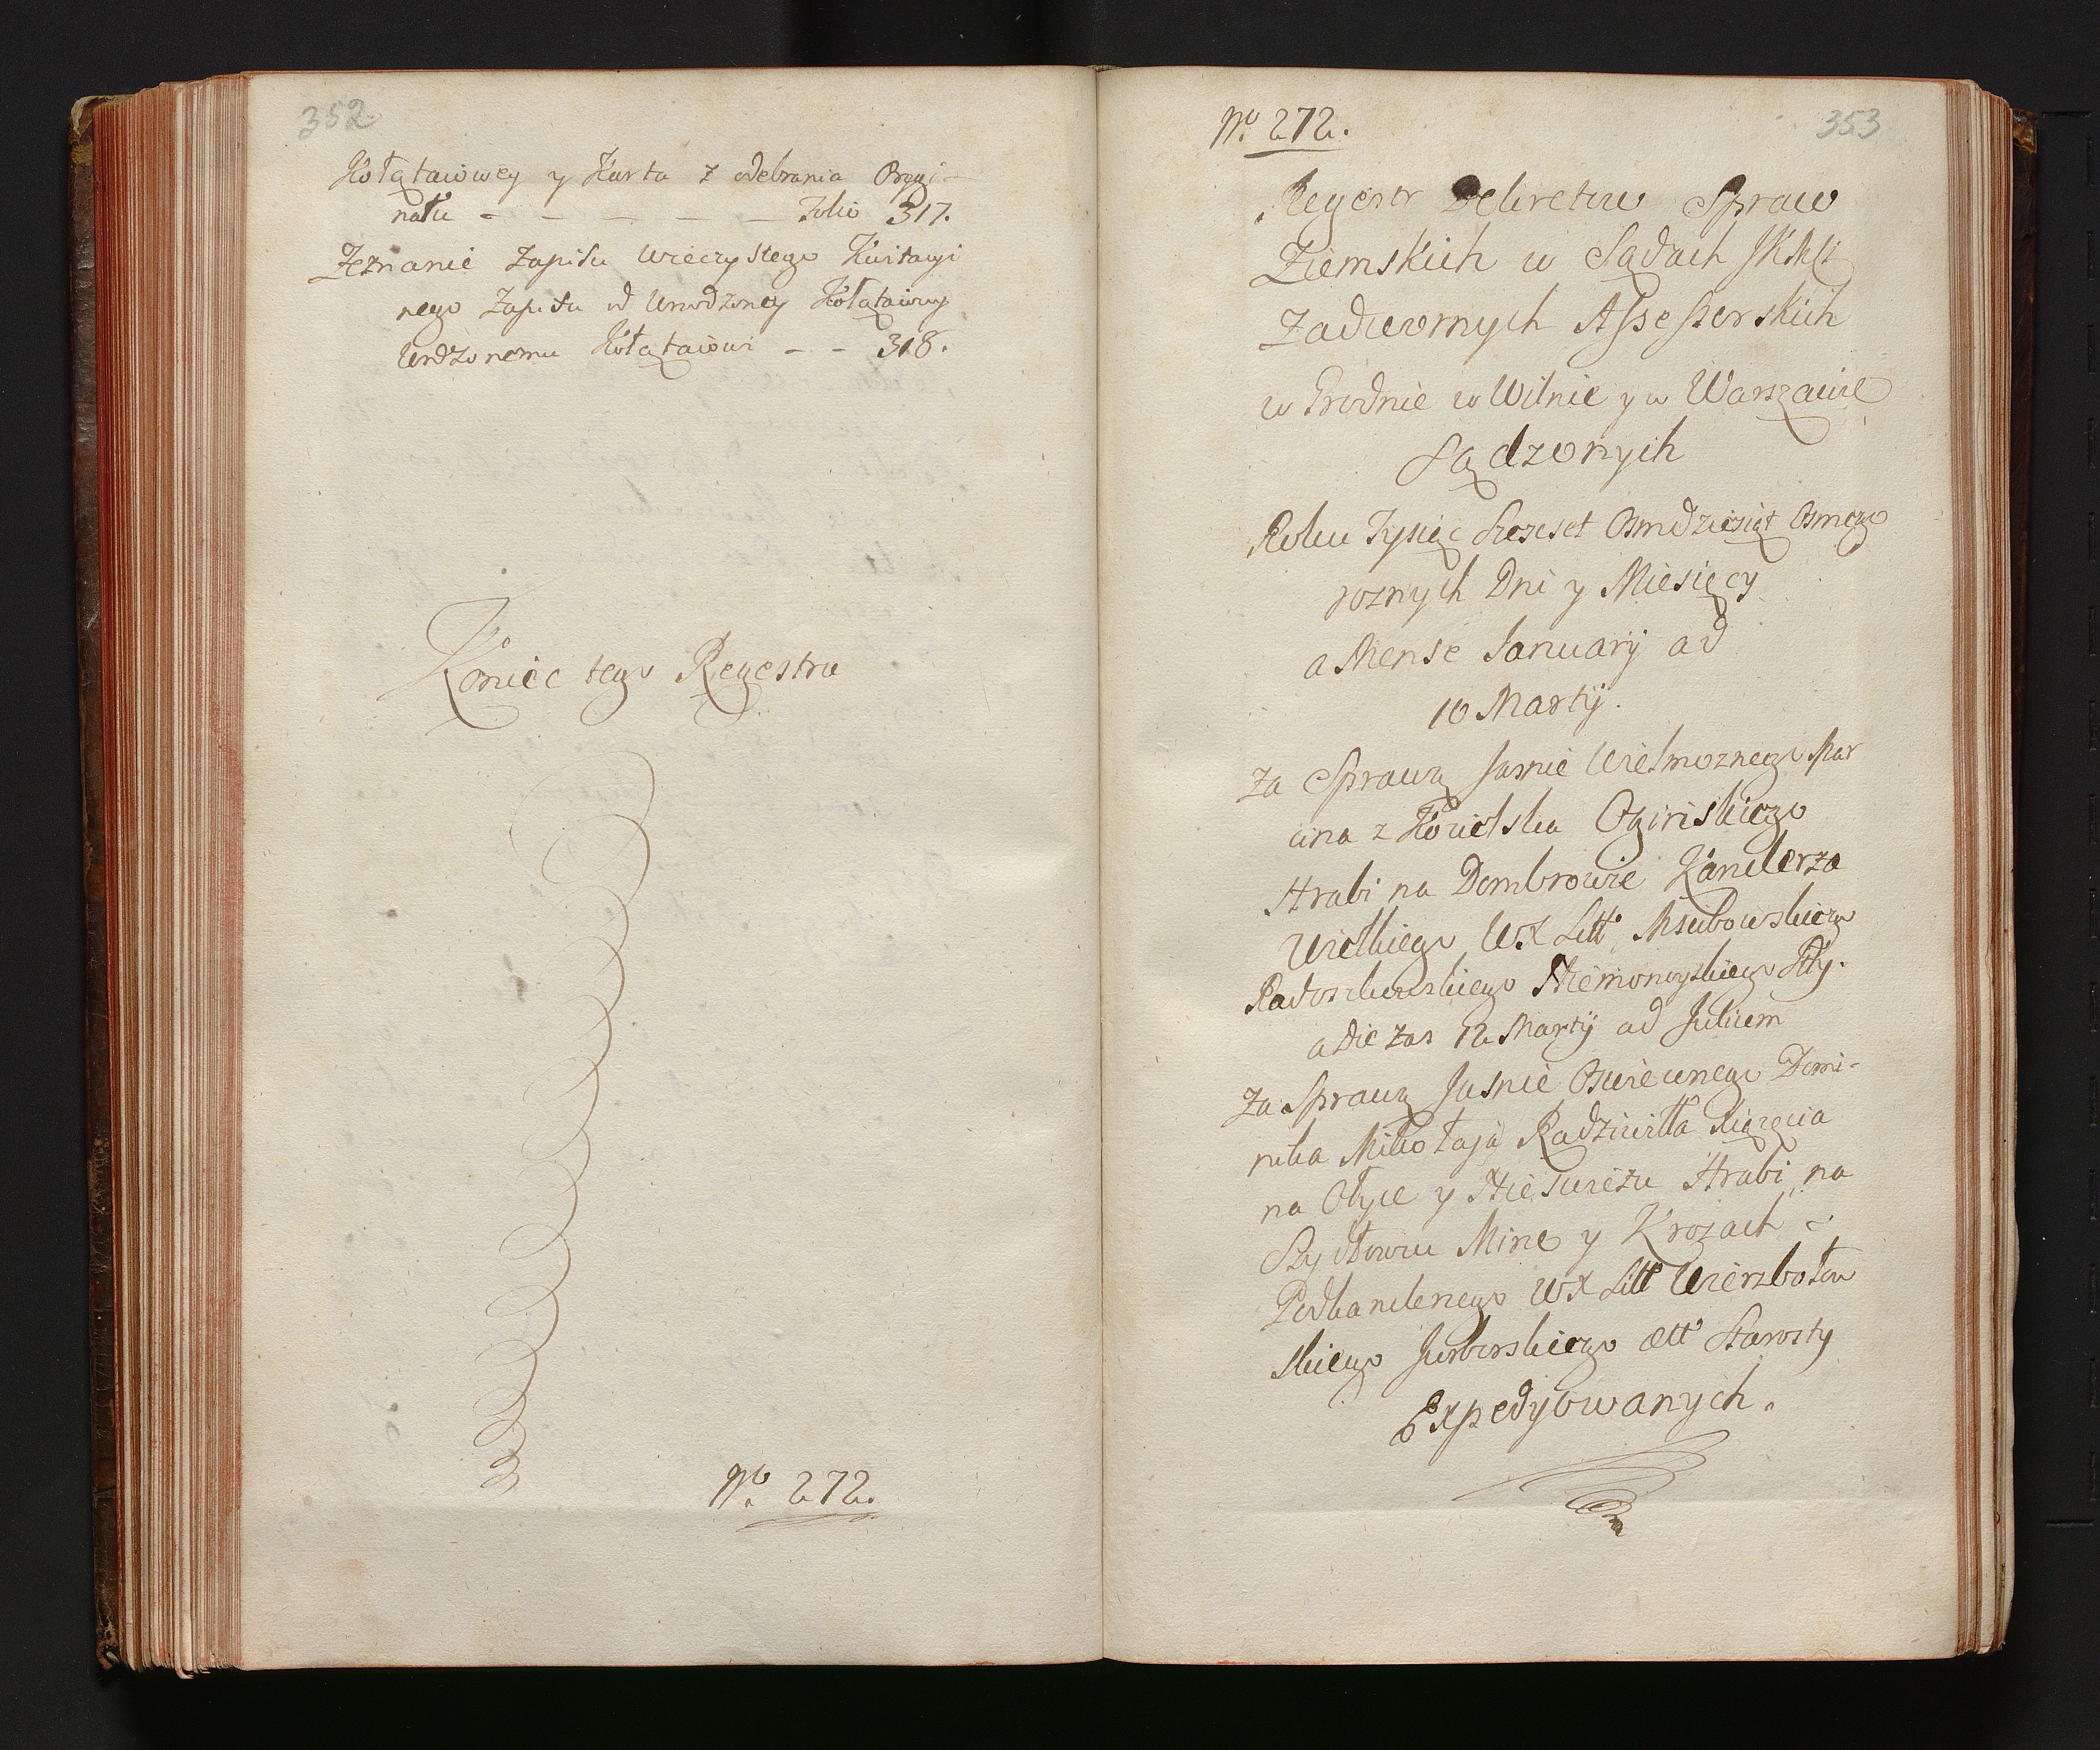 352.
Kołątaiowey y Karta z odebrania Orygi-
nału - - - - - Folio 317.
Zeznanie Zapisu wieczystego Kwitacyi
nego Zapisu od Urodzoney Kołątaiowey
Urdzonemu Kołątaiowi - - 318.
Koniec tego Regestru
No. 272.
No. 272.
353
Regestr Dekretow Spraw
Ziemskich w Sądach JKMci
Zadwornych Assessorskich
w Grodnie w Wilnie y w Warszawie
Sądzonych
Roku Tysiąc Szeset Osmdziesiąt Osmego
roznych Dni y Miesięcy
a Mense January ad
10 Martij.
Za Sprawą Jasnie Wielmoznego Mar
cina z Kozielska Oginskiego
Hrabi na Dombrowie Kanclerza
Wielkiego WX Litt Mscibowskiego
Radoszkowskiego Niemonoyskiego Stty.
a Die Zas 12 Martij ad Julium
Za Sprawą Jasnie Oswieconego Domi-
nika Mikołaja Radziwiłła Xiązęcia
na Ołyce y Nieswiezu Hrabi na
Szydłowcu Mirze y Krozach
Podkanclerzego WX Litt Wierzbołow
skiego Jurborskiego ett Starosty
Expedyowanych.